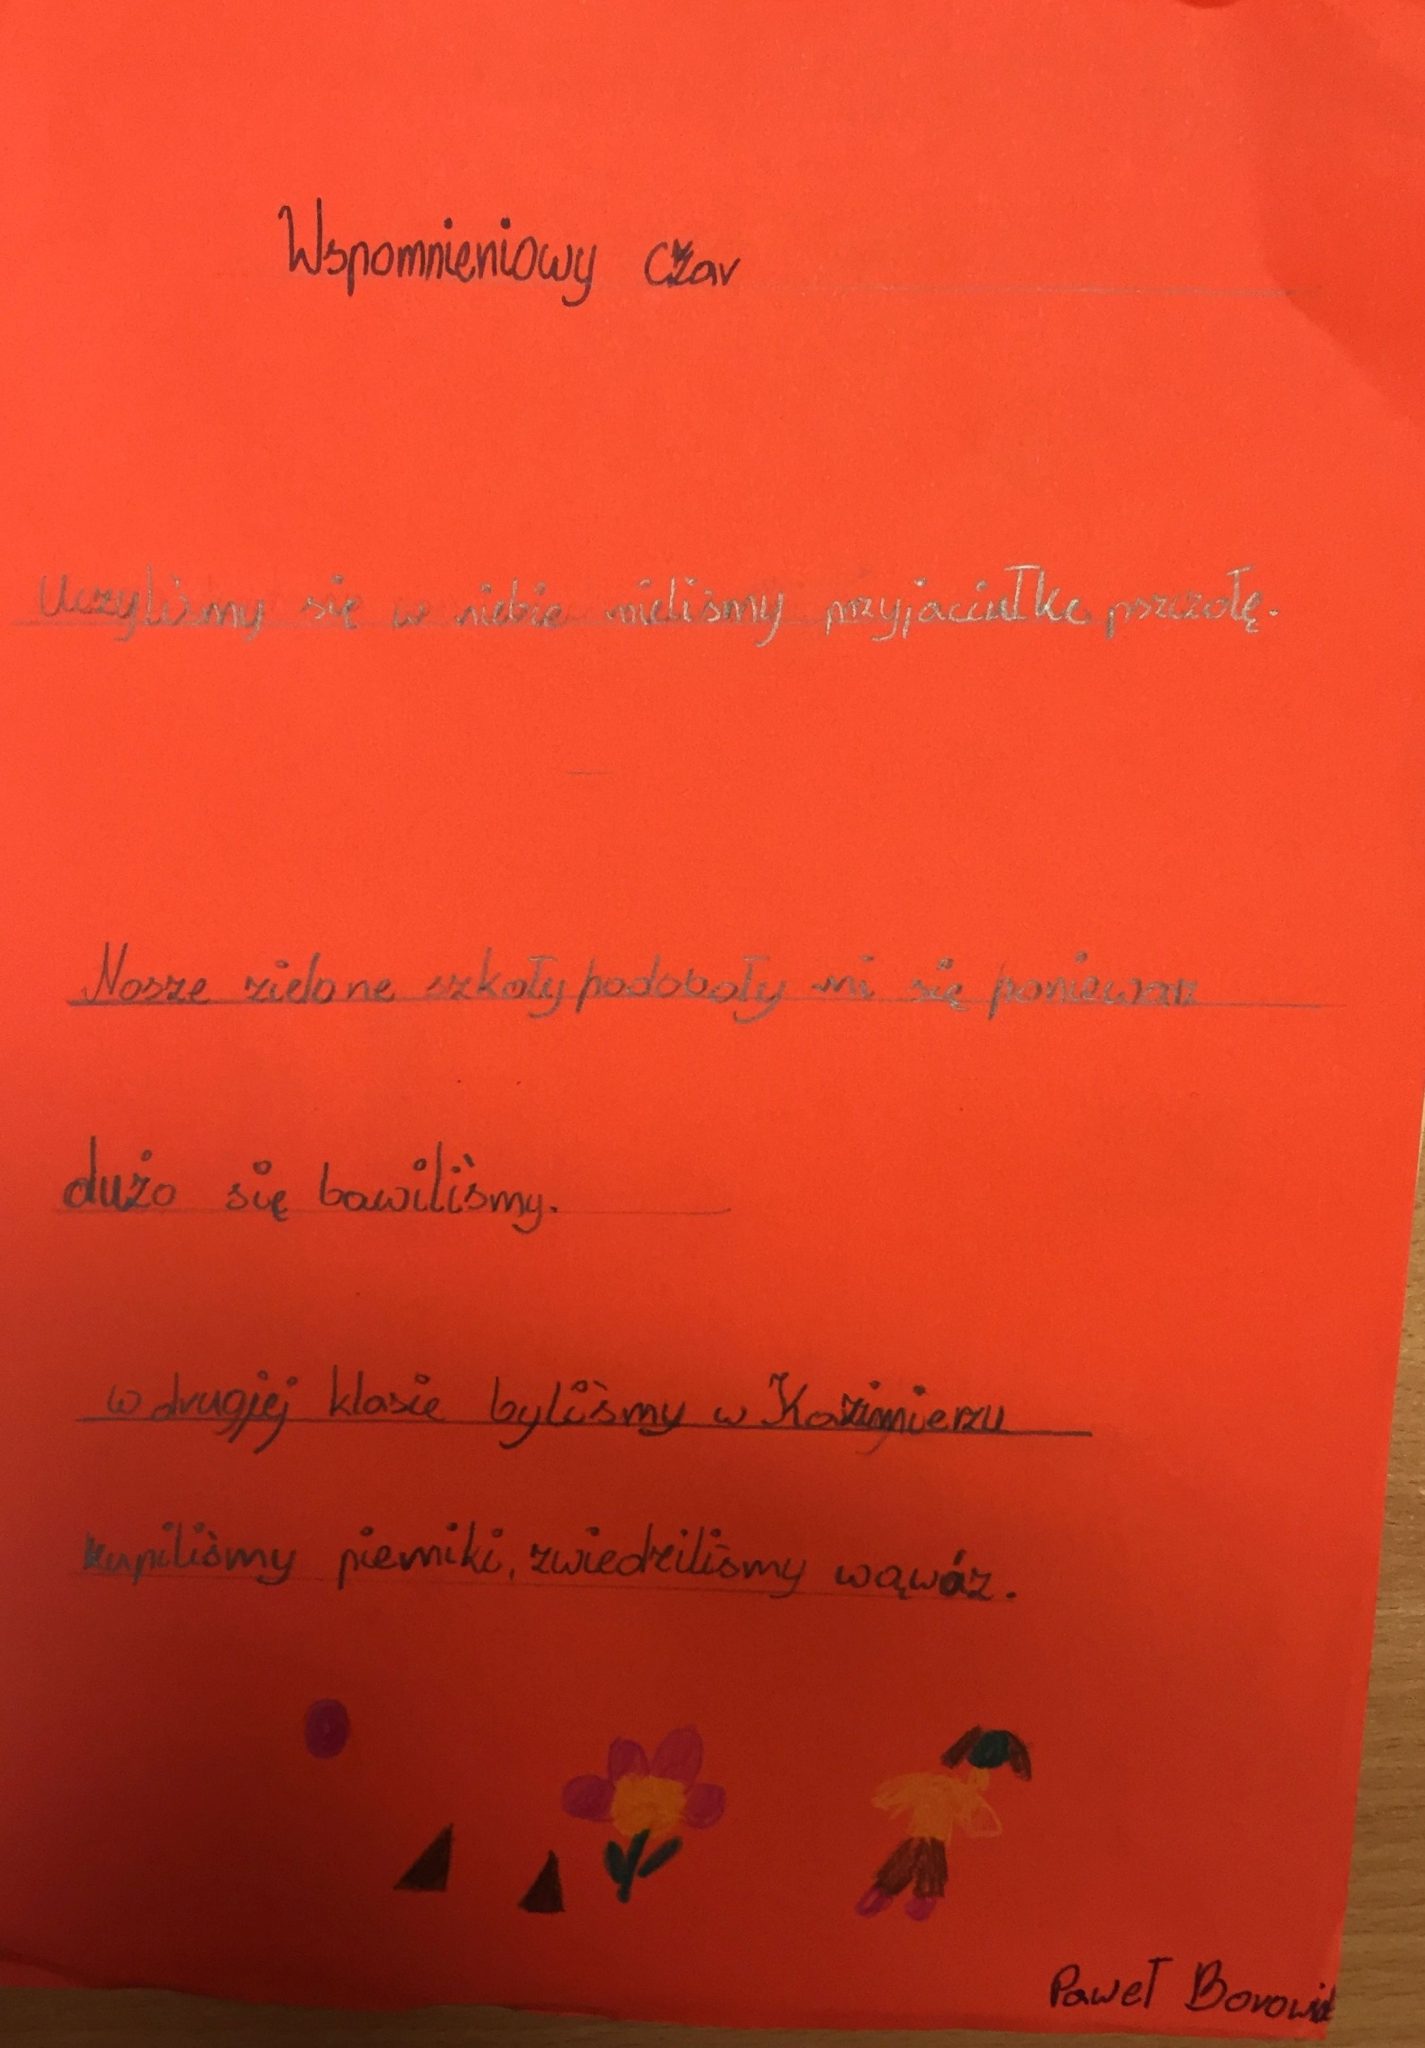 Wspomnieniowy czar
Uczyliśmy się w niebie mieliśmy przyjaciułkę pszczołę.
Nasze zielone szkoły podobały mi się poniewarz
dużo się bawiliśmy.
w drugjej klasie byliśmy w Kazimierzu
kupiliśmy pierniki, zwiedziliśmy wąwóz.
Paweł